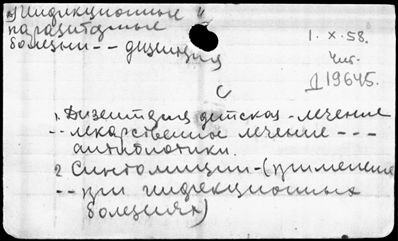 "Инфекционные и
паразитарные
болезни -- дизентерия
1. X. 58.
Чит.
Д 19645.
С
1. Дизентерия детская - лечение
-- лекарственное лечение ---
антибиотики.
2 Синтомицин - (применение
-- при инфекционных
болезнях)